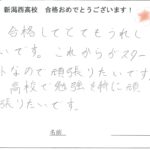 新潟西高校 合格おめでとうございます!
合格してとてもうれし
いです。これからがスター
トなので頑張りたいです。
高校で勉強を特に頑
張りたいです。
名前